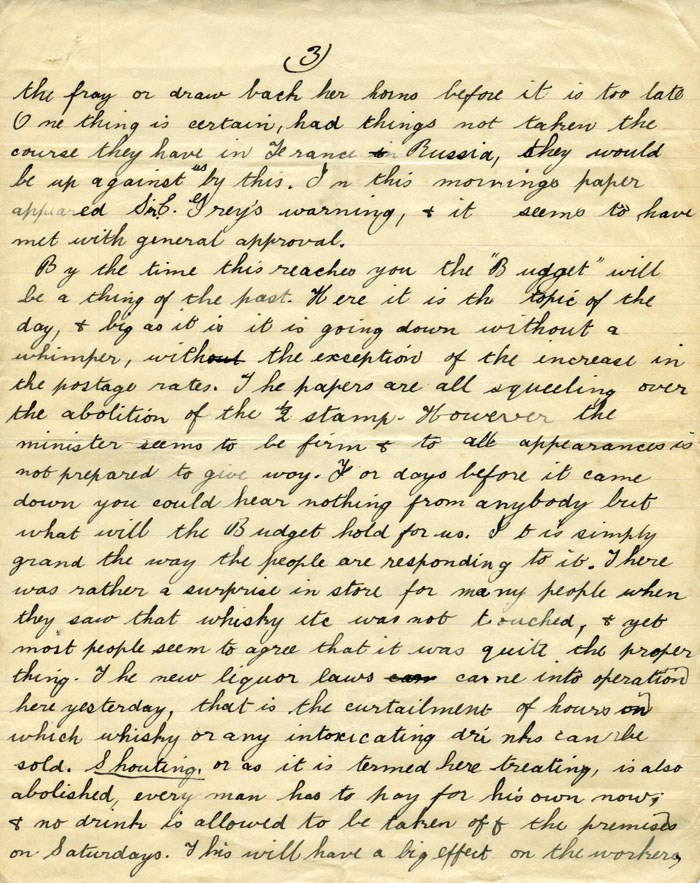 (3)
the fray or draw back her horns before it is too late
One thing is certain, had things not taken the
course they have in France & Russia, they would
be up against us by this. In this mornings paper
appeared Sir E. Grey's warning, & it seems to have
met with general approval.
By the time this reaches you the "Budget" will
be a thing of the past. Here it is th topic of the
day, & big as it is it is going down without a
whimper, without the exception of the increase in
the postage rates. The papers are all squeeling over
the abolition of the ½ stamp. However the
minister seems to be firm & to all appearances is
not prepared to give way. For days before it came
down you could hear nothing from anybody but
what will the Budget hold for us. It is simply
grand the way the people are responding to it. There
was rather a surprise in store for many people when
they saw that whisky etc was not touched, & yet
most people seem to agree that it was quite the proper
thing. The new liquor laws cam came into operation
here yesterday, that is the curtailment of hours on
which whisky or any intoxicating drinks can be
sold. Shouting, or as it is termed here treating, is also
abolished, every man has to pay for his own now;
& no drink is allowed to be taken off the premises
on Saturdays. This will have a big effect on the workers,